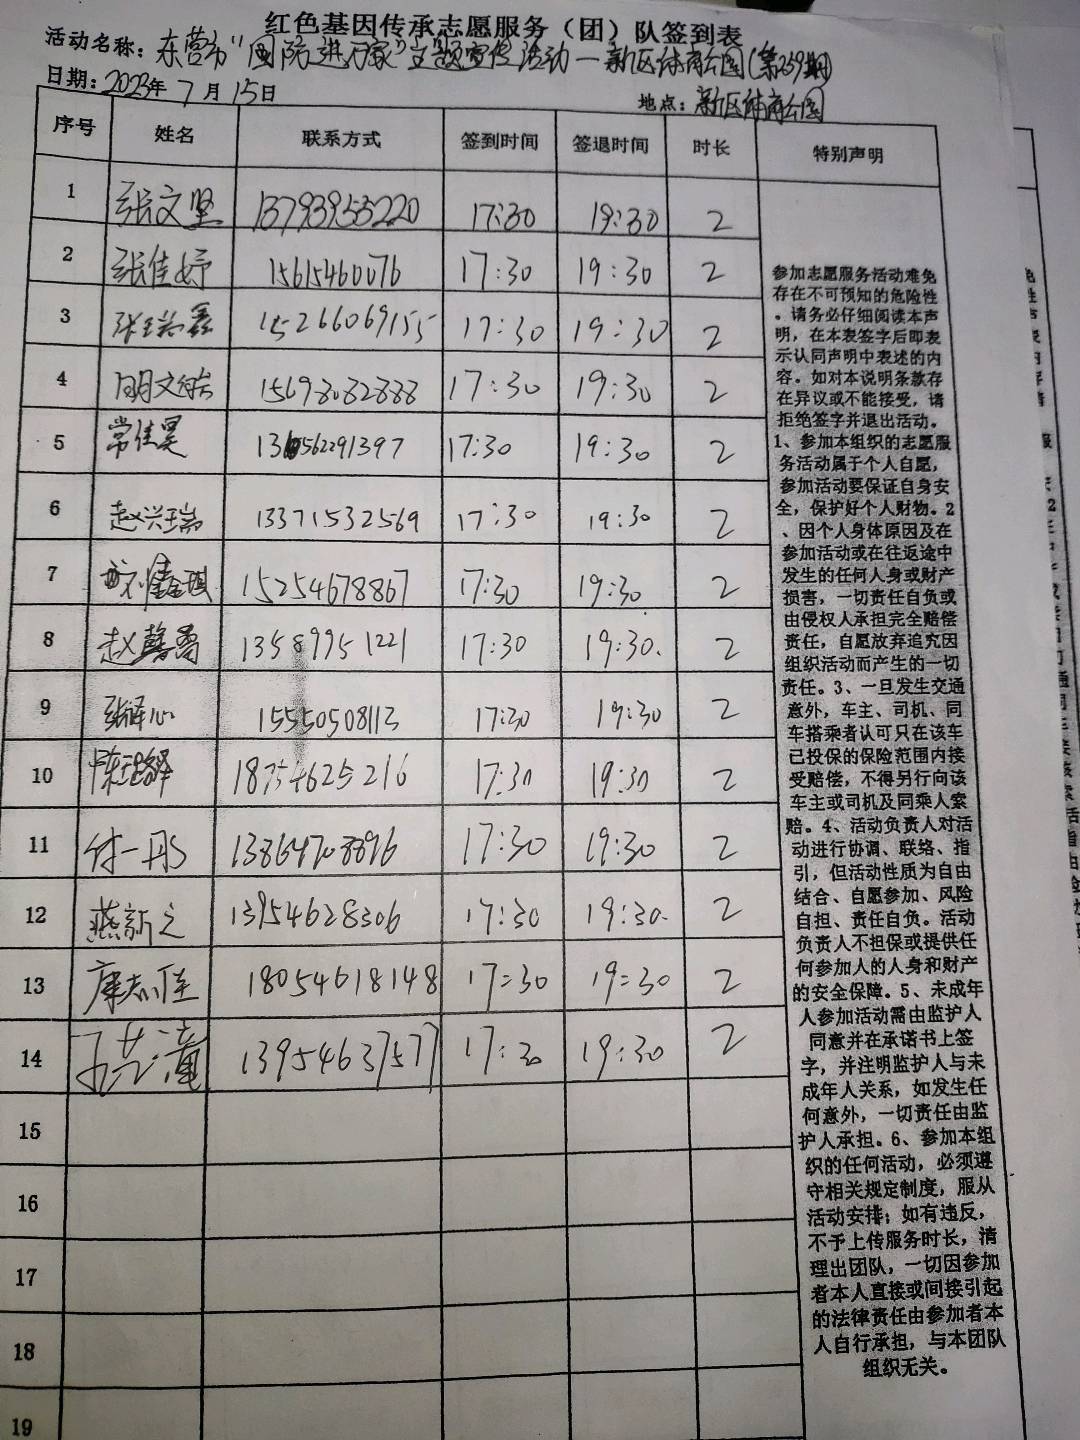 红色基因传承志愿服务（团）队签到表
活动名称：东营市“国防进万家”主题宣传活动—新区体育公园(第259期)
日期：2023年7月15日
地点：新区体育公园
序号 姓名 联系方式 签到时间 签退时间 时长 特别声明
1 张文坚 13793955220 17:30 19:30 2
2 张佳妤 15615460076 17:30 19:30 2
3 张瑞鑫 15266069155 17:30 19:30 2
4 15698082888 17:30 19:30 2
5 常佳昊 17:30 19:30 2
6 赵兴瑞 13371532569 17:30 19:30 2
7 15254678867 17:30 19:30 2
8 赵馨 13589951221 17:30 19:30. 2
9 15550508113 17:30 19:30 2
10 18754625216 17:30 19:30 2
11 付一丹 13864708896 17:30 19:30 2
12 燕新之 13954628306 17:30 19:30. 2
13 康志佳 18054618148 17:30 19:30 2
14 13954637577 17:30 19:30 2
15
16
17
18
19
参加志愿服务活动难免
存在不可预知的危险性
。请务必仔细阅读本声
明，在本表签字后即表
示认同声明中表述的内
容。如对本说明条款存
在异议或不能接受，请
拒绝签字并退出活动。
1、参加本组织的志愿服
务活动属于个人自愿，
参加活动要保证自身安
全，保护好个人财物。2
、因个人身体原因及在
参加活动或在往返途中
发生的任何人身或财产
损害，一切责任自负或
由侵权人承担完全赔偿
责任，自愿放弃追究因
组织活动而产生的一切
责任。3、一旦发生交通
意外，车主、司机、同
车搭乘者认可只在该车
已投保的保险范围内接
受赔偿，不得另行向该
车主或司机及同乘人索
赔。4、活动负责人对活
动进行协调、联络、指
引，但活动性质为自由
结合、自愿参加、风险
自担、责任自负。活动
负责人不担保或提供任
何参加人的人身和财产
的安全保障。5、未成年
人参加活动需由监护人
同意并在承诺书上签
字，并注明监护人与未
成年人关系，如发生任
何意外，一切责任由监
护人承担。6、参加本组
织的任何活动，必须遵
守相关规定制度，服从
活动安排；如有违反，
不予上传服务时长，清
理出团队，一切因参加
者本人直接或间接引起
的法律责任由参加者本
人自行承担，与本团队
组织无关。